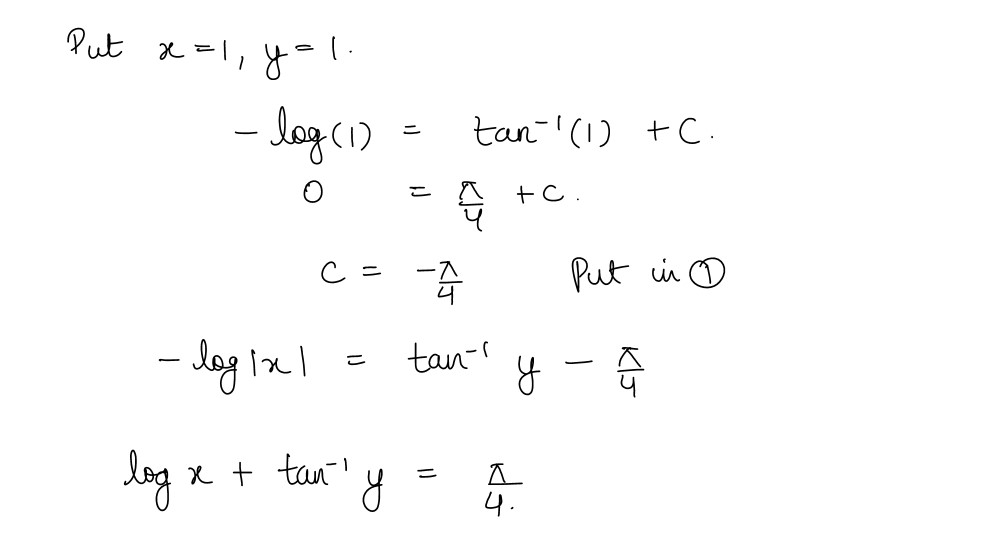 Put x = 1, y = 1.
- log(1) = tan⁻¹(1) + C.
0 = π/4 + C.
C = -π/4 Put in ①
- log|x| = tan⁻¹ y - π/4
log x + tan⁻¹ y = π/4.